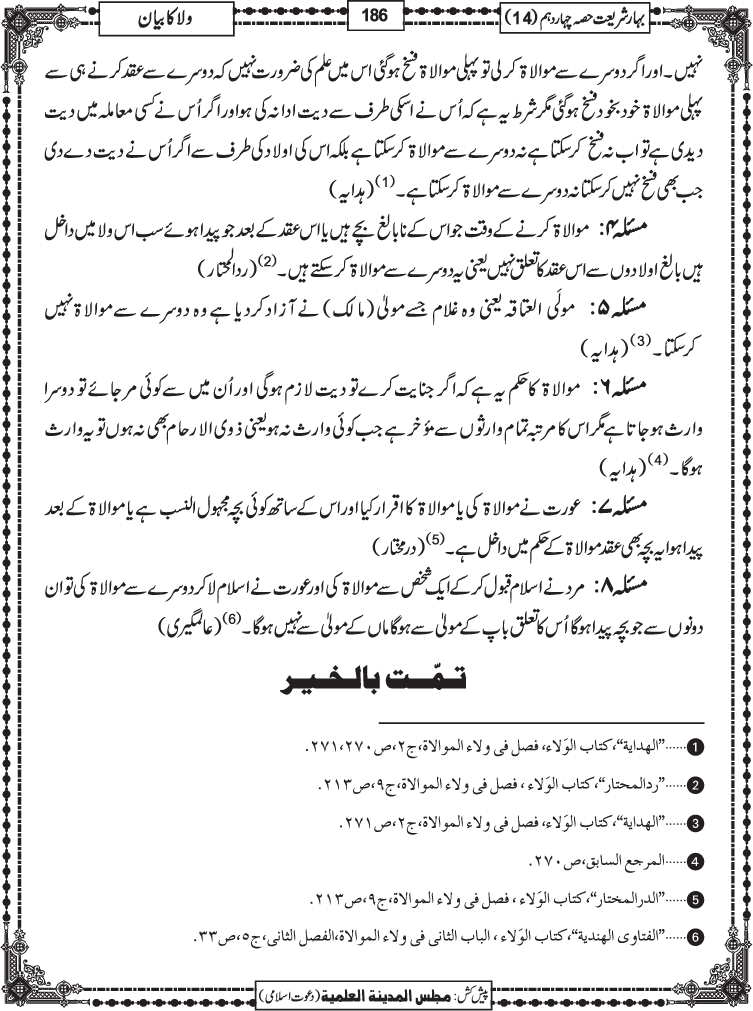 بہارشریعت حصہ چہاردہم (14)
186
ولا کا بیان
نہیں۔ اور اگر دوسرے سے موالاۃ کرلی تو پہلی موالاۃ فسخ ہوگئی اس میں علم کی ضرورت نہیں کہ دوسرے سے عقد کرنے ہی سے
پہلی موالاۃ خود بخود فسخ ہوگئی مگر شرط یہ ہے کہ اُس نے اسکی طرف سے دیت ادا نہ کی ہو اور اگر اُس نے کسی معاملہ میں دیت
دیدی ہے تو اب نہ فسخ کرسکتا ہے نہ دوسرے سے موالاۃ کرسکتا ہے بلکہ اس کی اولاد کی طرف سے اگر اُس نے دیت دے دی
جب بھی فسخ نہیں کرسکتا نہ دوسرے سے موالاۃ کرسکتا ہے۔(1) (ہدایہ)
مسئلہ ۴: موالاۃ کرنے کے وقت جو اس کے نابالغ بچے ہیں یا اس عقد کے بعد جو پیدا ہوئے سب اس ولا میں داخل
ہیں بالغ اولادوں سے اس عقد کا تعلق نہیں یعنی یہ دوسرے سے موالاۃ کرسکتے ہیں۔(2) (ردالمحتار)
مسئلہ ۵: مولَی العتاقہ یعنی وہ غلام جسے مولیٰ (مالک) نے آزاد کردیا ہے وہ دوسرے سے موالاۃ نہیں
کرسکتا۔(3) (ہدایہ)
مسئلہ ۶: موالاۃ کا حکم یہ ہے کہ اگر جنایت کرے تو دیت لازم ہوگی اور اُن میں سے کوئی مرجائے تو دوسرا
وارث ہوجاتا ہے مگر اس کا مرتبہ تمام وارثوں سے مؤخر ہے جب کوئی وارث نہ ہو یعنی ذوی الارحام بھی نہ ہوں تو یہ وارث
ہوگا۔(4) (ہدایہ)
مسئلہ ۷: عورت نے موالاۃ کی یا موالاۃ کا اقرار کیا اور اس کے ساتھ کوئی بچہ مجہول النسب ہے یا موالاۃ کے بعد
پیدا ہوا یہ بچہ بھی عقد موالاۃ کے حکم میں داخل ہے۔(5) (درمختار)
مسئلہ ۸: مرد نے اسلام قبول کرکے ایک شخص سے موالاۃ کی اور عورت نے اسلام لاکر دوسرے سے موالاۃ کی تو ان
دونوں سے جو بچہ پیدا ہوگا اُس کا تعلق باپ کے مولیٰ سے ہوگا ماں کے مولیٰ سے نہیں ہوگا۔(6) (عالمگیری)
تمّت بالخیر
1......”الهداية“، كتاب الوَلاء، فصل فى ولاء الموالاة، ج۲، ص۲۷۰،۲۷۱.
2......”ردالمحتار“، كتاب الوَلاء ، فصل فى ولاء الموالاة، ج۹، ص۲۱۳.
3......”الهداية“، كتاب الوَلاء، فصل فى ولاء الموالاة، ج۲، ص۲۷۱.
4......المرجع السابق، ص۲۷۰.
5......”الدرالمختار“، كتاب الوَلاء ، فصل فى ولاء الموالاة، ج۹، ص۲۱۳.
6......”الفتاوى الهندية“، كتاب الوَلاء ، الباب الثانى فى ولاء الموالاة، الفصل الثانى، ج۵، ص۳۳.
پیش کش: مجلس المدینة العلمية (دعوت اسلامی)